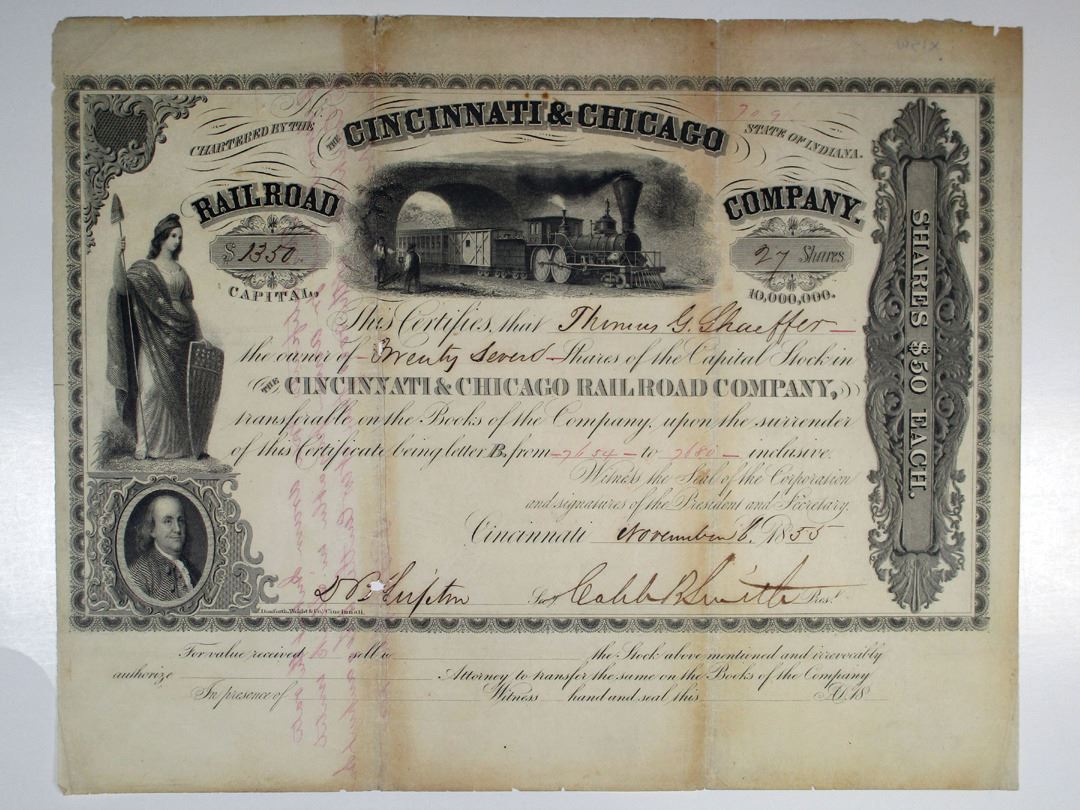 WEIX
709
CHARTERED BY THE
THE CINCINNATI & CHICAGO
STATE OF INDIANA.
RAILROAD
COMPANY.
$ 1350.
27 Shares
CAPITAL,
10,000,000.
This Certifies, that Thomas G. Shaeffer
the owner of Twenty Seven Shares of the Capital Stock in
THE CINCINNATI & CHICAGO RAILROAD COMPANY,
transferable on the Books of the Company, upon the surrender
of this Certificate being letter B, from 7654 to 7680 inclusive.
Witness the Seal of the Corporation
and signatures of the President and Secretary.
Cincinnati November 8, 1855
Secy Caleb B Smith Pres.t
Danforth, Wright & Co., Cincinnati.
SHARES $50 EACH.
For value received sell to the Stock above mentioned and irrevocably
authorize Attorney to transfer the same on the Books of the Company
In presence of Witness hand and seal this A.D. 18